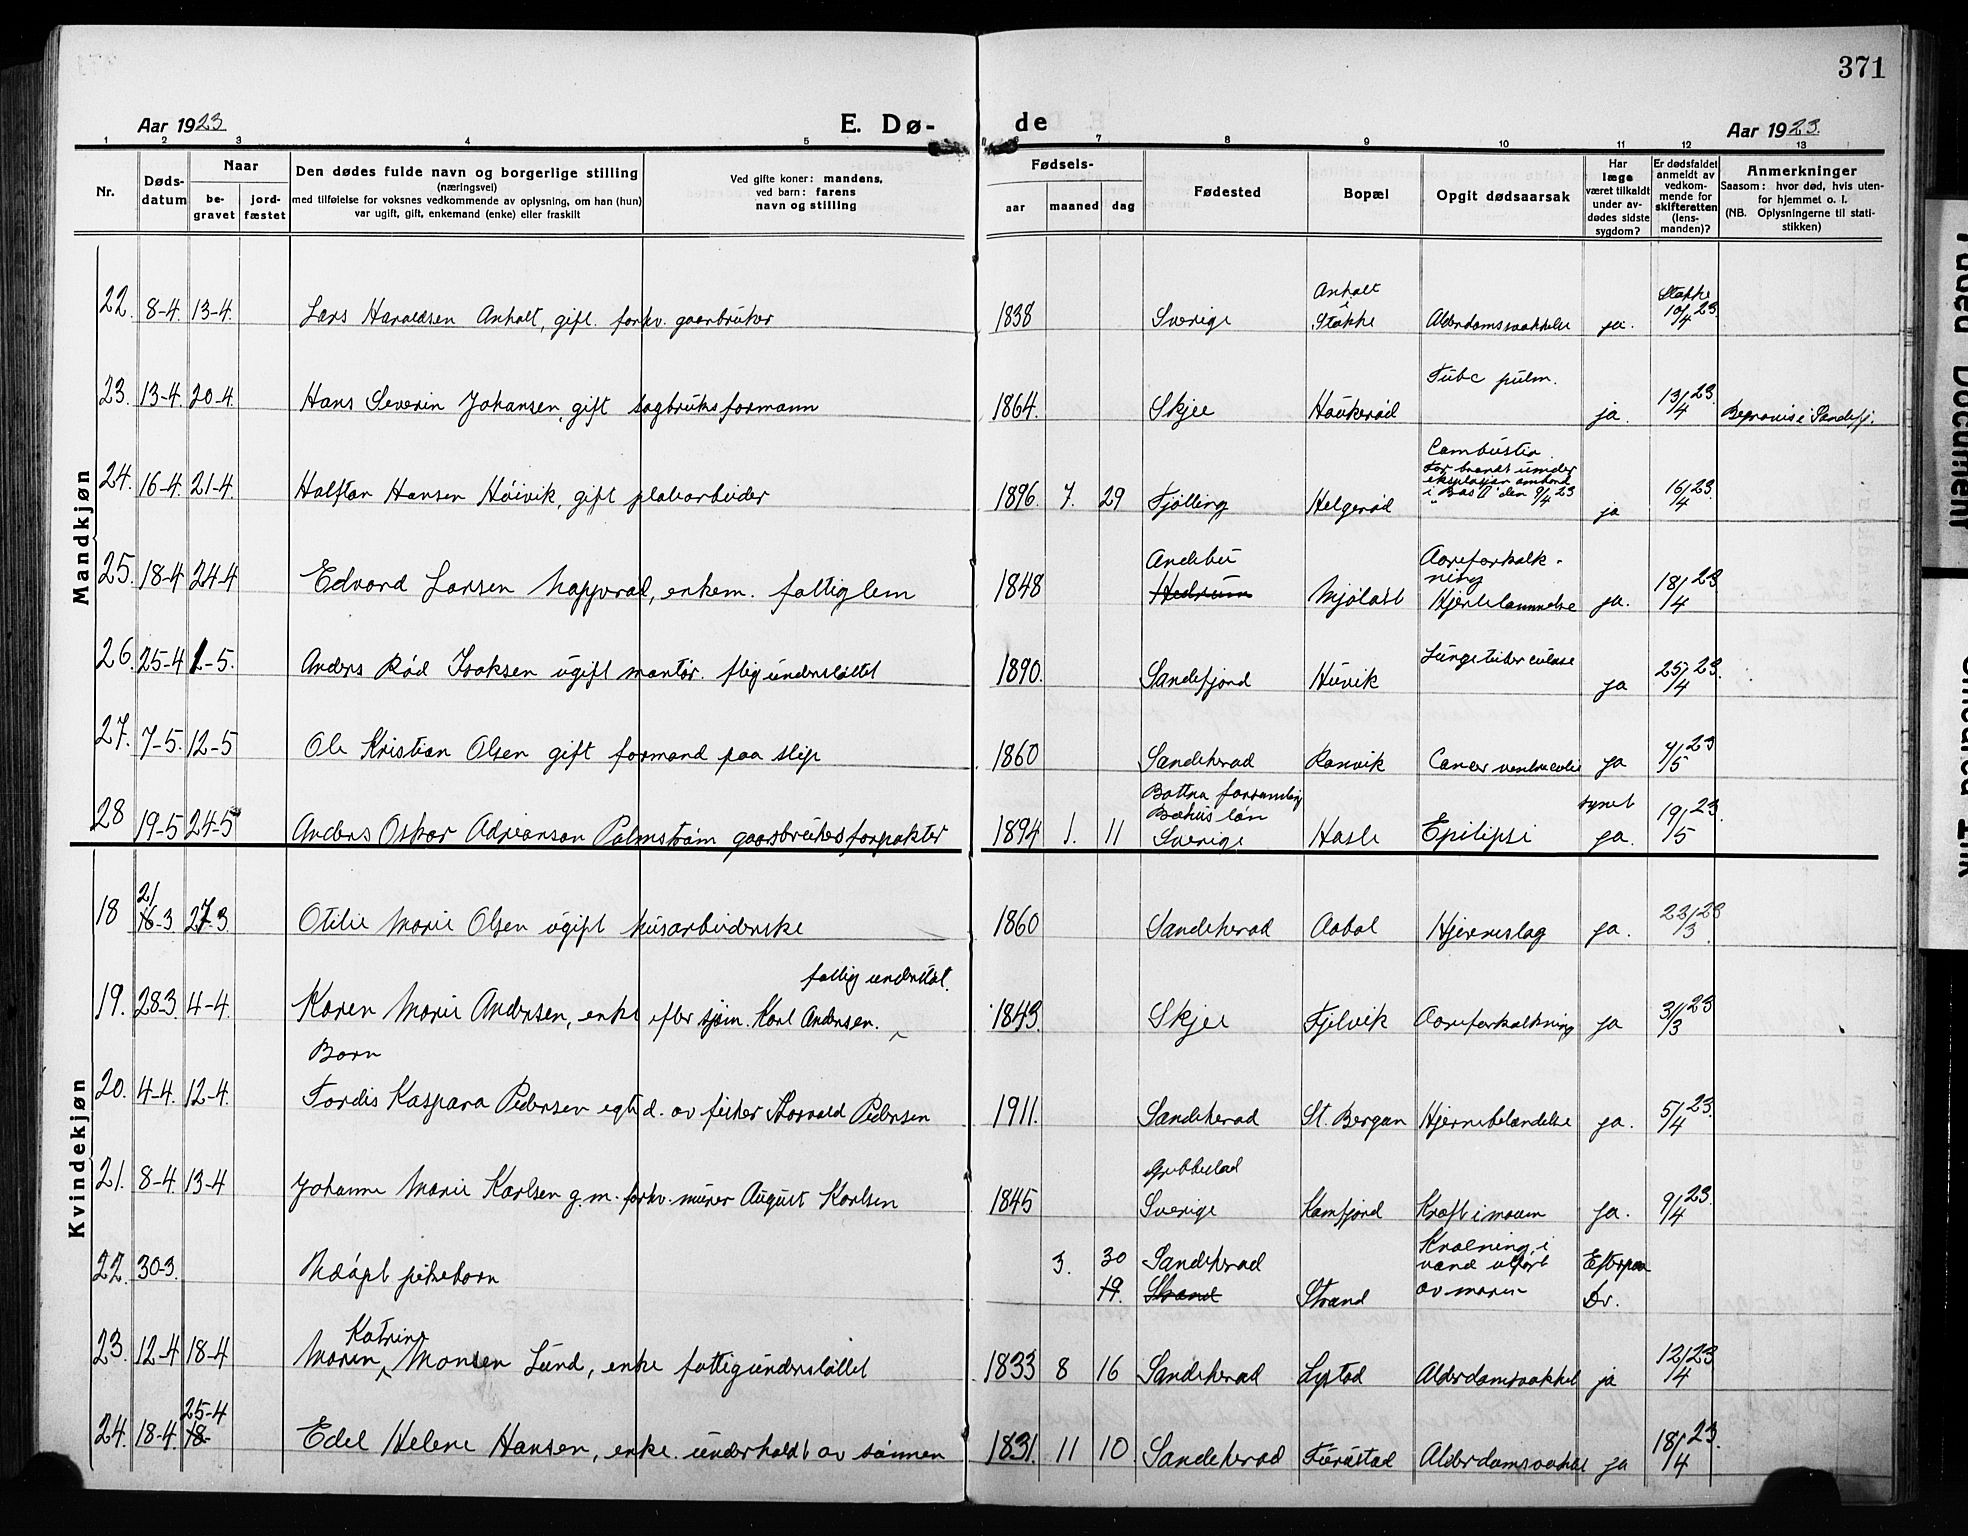 371
Aar 1923
E. Dø-
de
Aar 1923.
1 2 3 4 5 6 7 8 9 10 11 12 13
Nr.
Døds-
datum
Naar
be-
gravet
jord-
fæstet
Den dødes fulde navn og borgerlige stilling
(næringsvei)
med tilføielse for voksnes vedkommende av oplysning, om han (hun)
var ugift, gift, enkemand (enke) eller fraskilt
Ved gifte koner: mandens,
ved barn: farens
navn og stilling
Fødsels-
aar
maaned
dag
Fødested
Bopæl
Opgit dødsaarsak
Har
læge
været tilkaldt
under av-
dødes sidste
sygdom?
Er dødsfaldet
anmeldt av
vedkom-
mende for
skifteretten
(lens-
manden)?
Anmerkninger
Saasom: hvor død, hvis uten-
for hjemmet o. l.
(NB. Oplysningerne til stati-
stikken)
Mandkjøn
22. 8-4. 13-4. Lars Haraldsen Anholt, gift. forhv. gaarbruker 1838 Sverige Anholt i Stokke Alderdomssvakkelse ja. Stokke 10/4 23.
23. 13-4. 20-4. Hans Severin Johansen, gift sagbruksformann 1864. Skjee Haukerød Tubc pulm. ja. 13/4 23. Begraves i Sandefj.
24. 16-4. 21-4. Halftan Hansen Høivik, gift platearbeider 1896. 7. 29 Tjølling Helgerød Combustio.
Forbrandt under
eksplosjon ombord
i "Bas II" den 9/4 23 ja 16/4 23.
25. 18-4 24-4 Edvard Larsen Napperød, enkem. fattiglem 1848 Andebu
Hedrum Mjølast Aareforkalk-
ning
Hjertelammelse ja. 18/4 23
26. 25-4 1-5. Anders Rød Isaksen ugift montør. ftig understøttet 1890. Sandefjord Huvik Lungetuberculose ja 25/4 23.
27. 7-5. 12-5 Ole Kristian Olsen gift formand paa slip 1860 Sandeherad Ranvik Cancer ventriculi ja /5 23
28 19-5 24-5 Anders Oskar Adrianson Palmstrøm gaardbruksforpakter 1894 1. 11 Bottna forsamling
Bohus län
Sverige Hasle Epilepsi synet
ja. 19/5 23.
Kvindekjøn
18 21/16-3 27-3 Otilie Marie Olsen ugift husarbeiderske 1860 Sandeherad Aabol Hjerneslag ja. 22/3 23.
fattig underst.
19. 28-3 4-4. Karen Marie Andersen, enke efter sjøm. Karl Andersen. 1843. Skjee Fjelvik Aareforkalkning ja 31/3 23
Barn
20. 4-4. 12-4. Tordis Kaspara Pedersen egt. d. av fisker Thorvald Pedersen 1911. Sandeherad St. Bergan Hjernebetændelse ja. 5/4 23.
21. 8-4. 13-4 Johanne Marie Karlsen g.m. forhv. murer August Karlsen 1845 Grebbestad
Sverige Kamfjord Kræft i maven ja. 9/4 23.
22. 30-3. Udøpt pikebarn 3. 30
19. Sandeherad
Strand Strand Kvælning i
vand utført
av moren Efterpaa
Dr.
Katrine
23. 12-4 18-4 Maren Monsen Lund, enke fattigunderstøttet 1833 8 16 Sandeherad Lystad Alderdomssvakkel ja 12/4 23
24. 18-4. 25-4
18- Edel Helene Hansen, enke. underholdt av sønnen 1831. 11 10 Sandeherad Furustad Alderdomssvakkel ja 18/4 23.